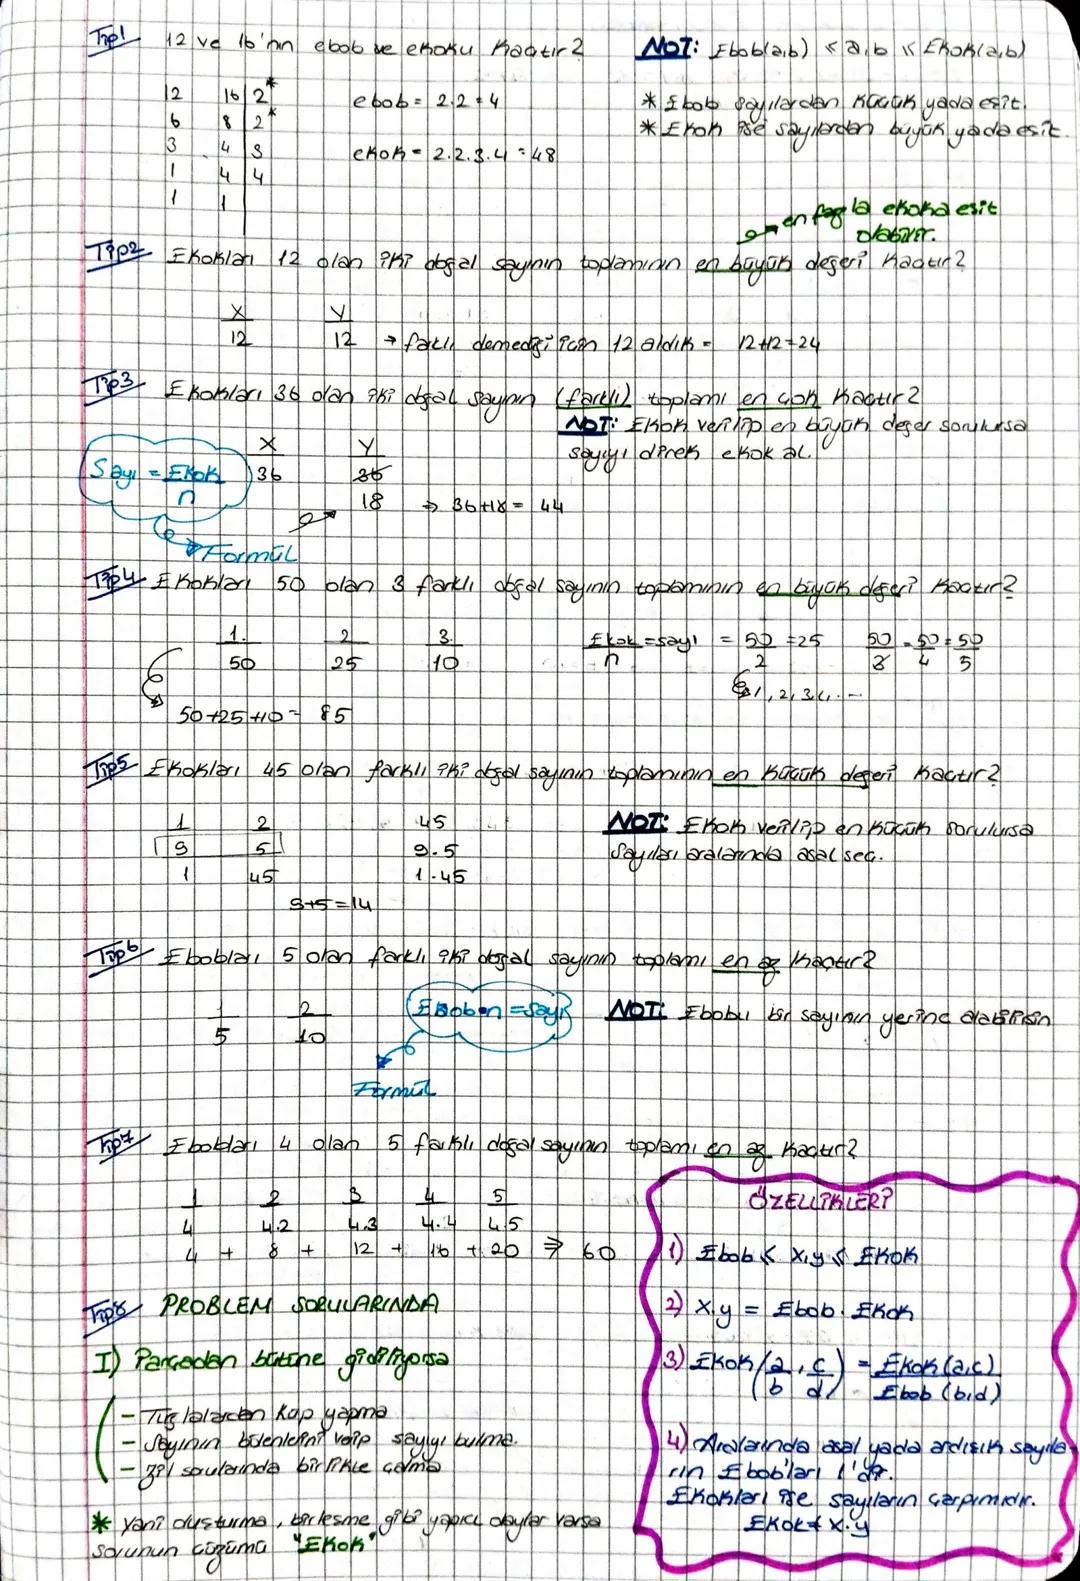 Tip1 12 ve 16'nın ebob ve ekoku kaçtır?
12 16 | 2*
6 8 | 2*
3 4 | 3
1 4 | 4
1 1 |
ebob = 2.2 = 4
ekok = 2.2.3.4 = 48
NOT: Ebob(a,b) ≤ a,b ≤ Ekok(a,b)
* Ebob sayılardan küçük yada eşit.
* Ekok ise sayılardan büyük yada eşit.
en fazla ekoka eşit
olabilir.
Tip2 Ekokları 12 olan iki doğal sayının toplamının en büyük değeri kaçtır?
X Y
12 12 → farklı demediği için 12 aldık = 12+12=24
Tip3 Ekokları 36 olan iki doğal sayının (farklı) toplamı en çok kaçtır?
NOT: Ekok verilip en büyük değer sorulursa
sayıyı direk ekok al.
Sayı = Ekok
n
Formül
X Y
36 36
18 → 36+18 = 44
Tip4 Ekokları 50 olan 3 farklı doğal sayının toplamının en büyük değeri kaçtır?
1. 2 3.
50 25 10
50+25+10 = 85
Ekok = sayı = 50 = 25 50 = 50 = 50
n 2 3 4 5
1, 2, 3, 4, ...
Tip5 Ekokları 45 olan farklı iki doğal sayının toplamının en küçük değeri kaçtır?
1 2 45
9 5 9.5
1 45 1.45
9+5=14
NOT: Ekok verilip en küçük sorulursa
Sayıları aralarında asal seç.
Tip6 Ebobları 5 olan farklı iki doğal sayının toplamı en az kaçtır?
1 2
5 10
Ebob.n = Sayı
Formül
NOT: Ebobu bir sayının yerine alabilirsin
Tip7 Ebobları 4 olan 5 farklı doğal sayının toplamı en az kaçtır?
1 2 3 4 5
4 4.2 4.3 4.4 4.5
4 + 8 + 12 + 16 + 20 ⇒ 60
Tip8 PROBLEM SORULARINDA
I) Parçadan bütüne gidiliyorsa
- Tuğlalardan küp yapma
- Sayının bölenlerini verip sayıyı bulma.
- Zil sorularında birlikte çalma
* Yani oluşturma, birleşme gibi yapıcı olaylar varsa
sorunun çözümü "EKOK"
ÖZELLİKLERİ
1) Ebob ≤ x,y ≤ EKOK
2) X.y = Ebob. EKOK
3) EKOK (a/b , c/d) = Ekok (a,c) / Ebob (b,d)
4) Aralarında asal yada ardışık sayıla
rın Ebob'ları 1'dir.
EKOKları ise sayıların çarpımıdır.
EKOK = x.y